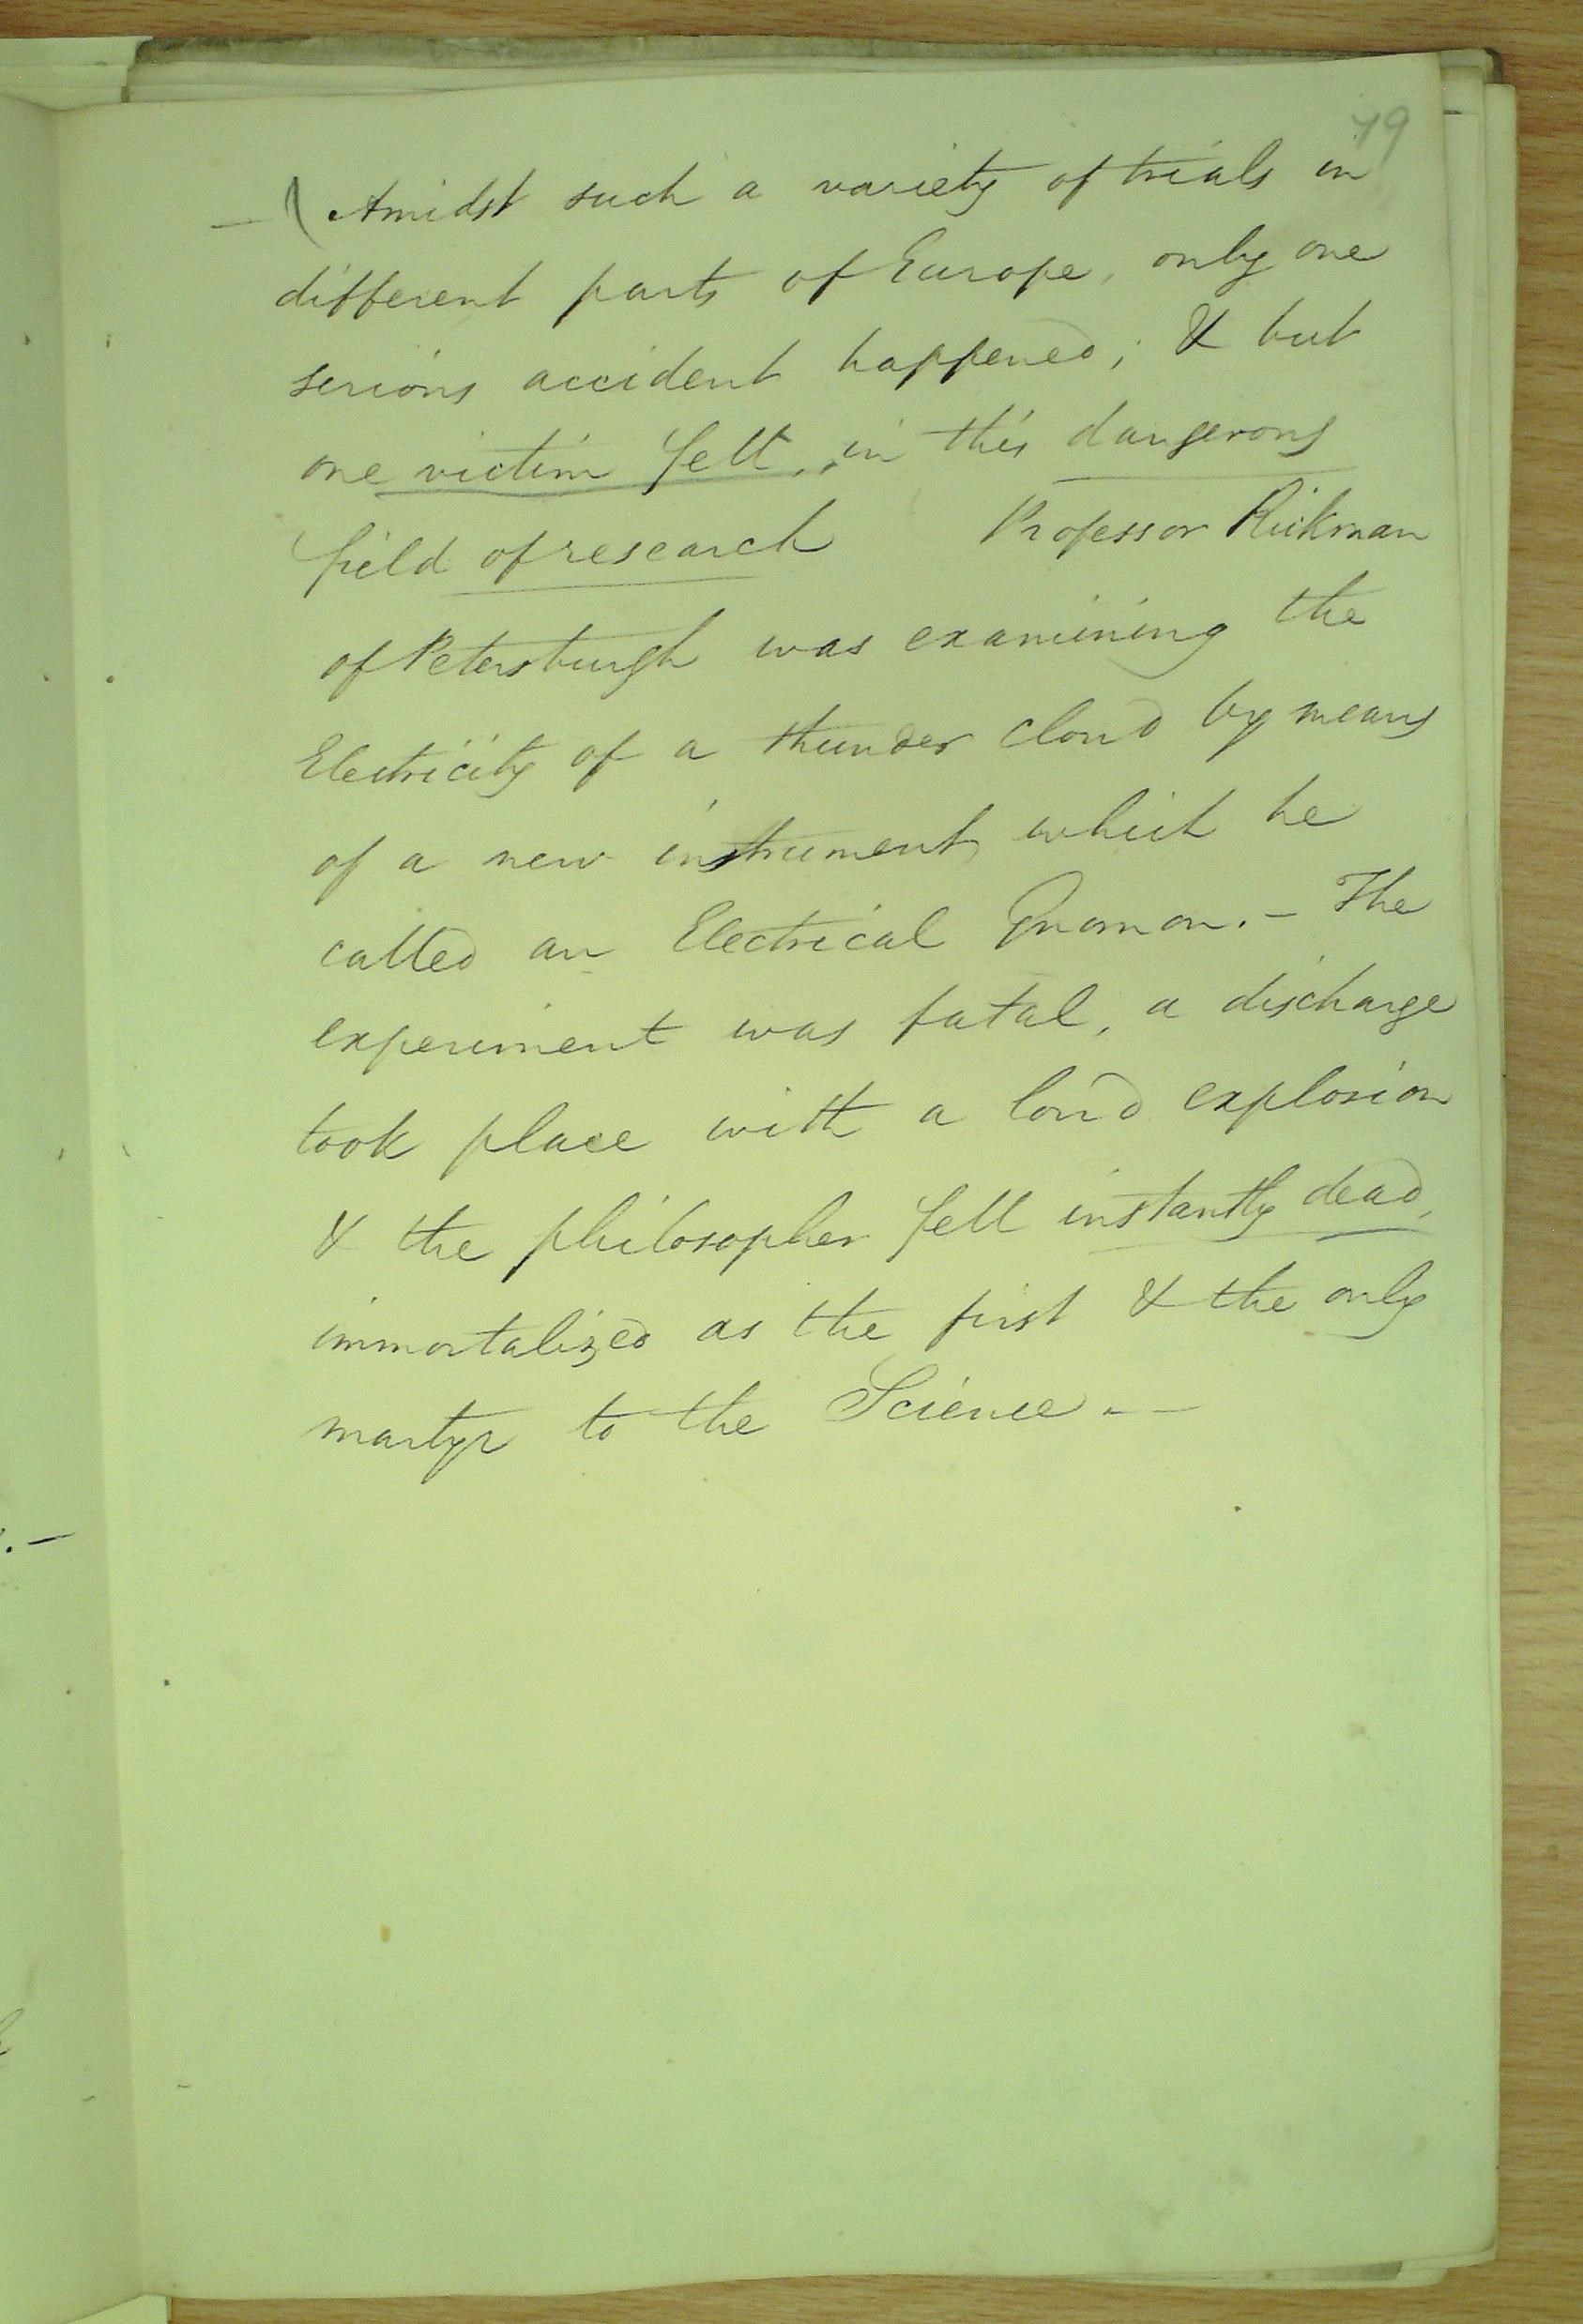 79
— ( Amidst such a variety of trials in
different parts of Europe, only one
serious accident happened; & but
one victim fell, in this dangerous
field of research Professor Rickman
of Petersburgh was examining the
Electricity of a thunder cloud by means
of a new instrument, which he
called an Electrical Gnomon. — The
experiment was fatal, a discharge
took place with a loud explosion
& the philosopher fell instantly dead,
immortalized as the first & the only
martyr to the Science. —